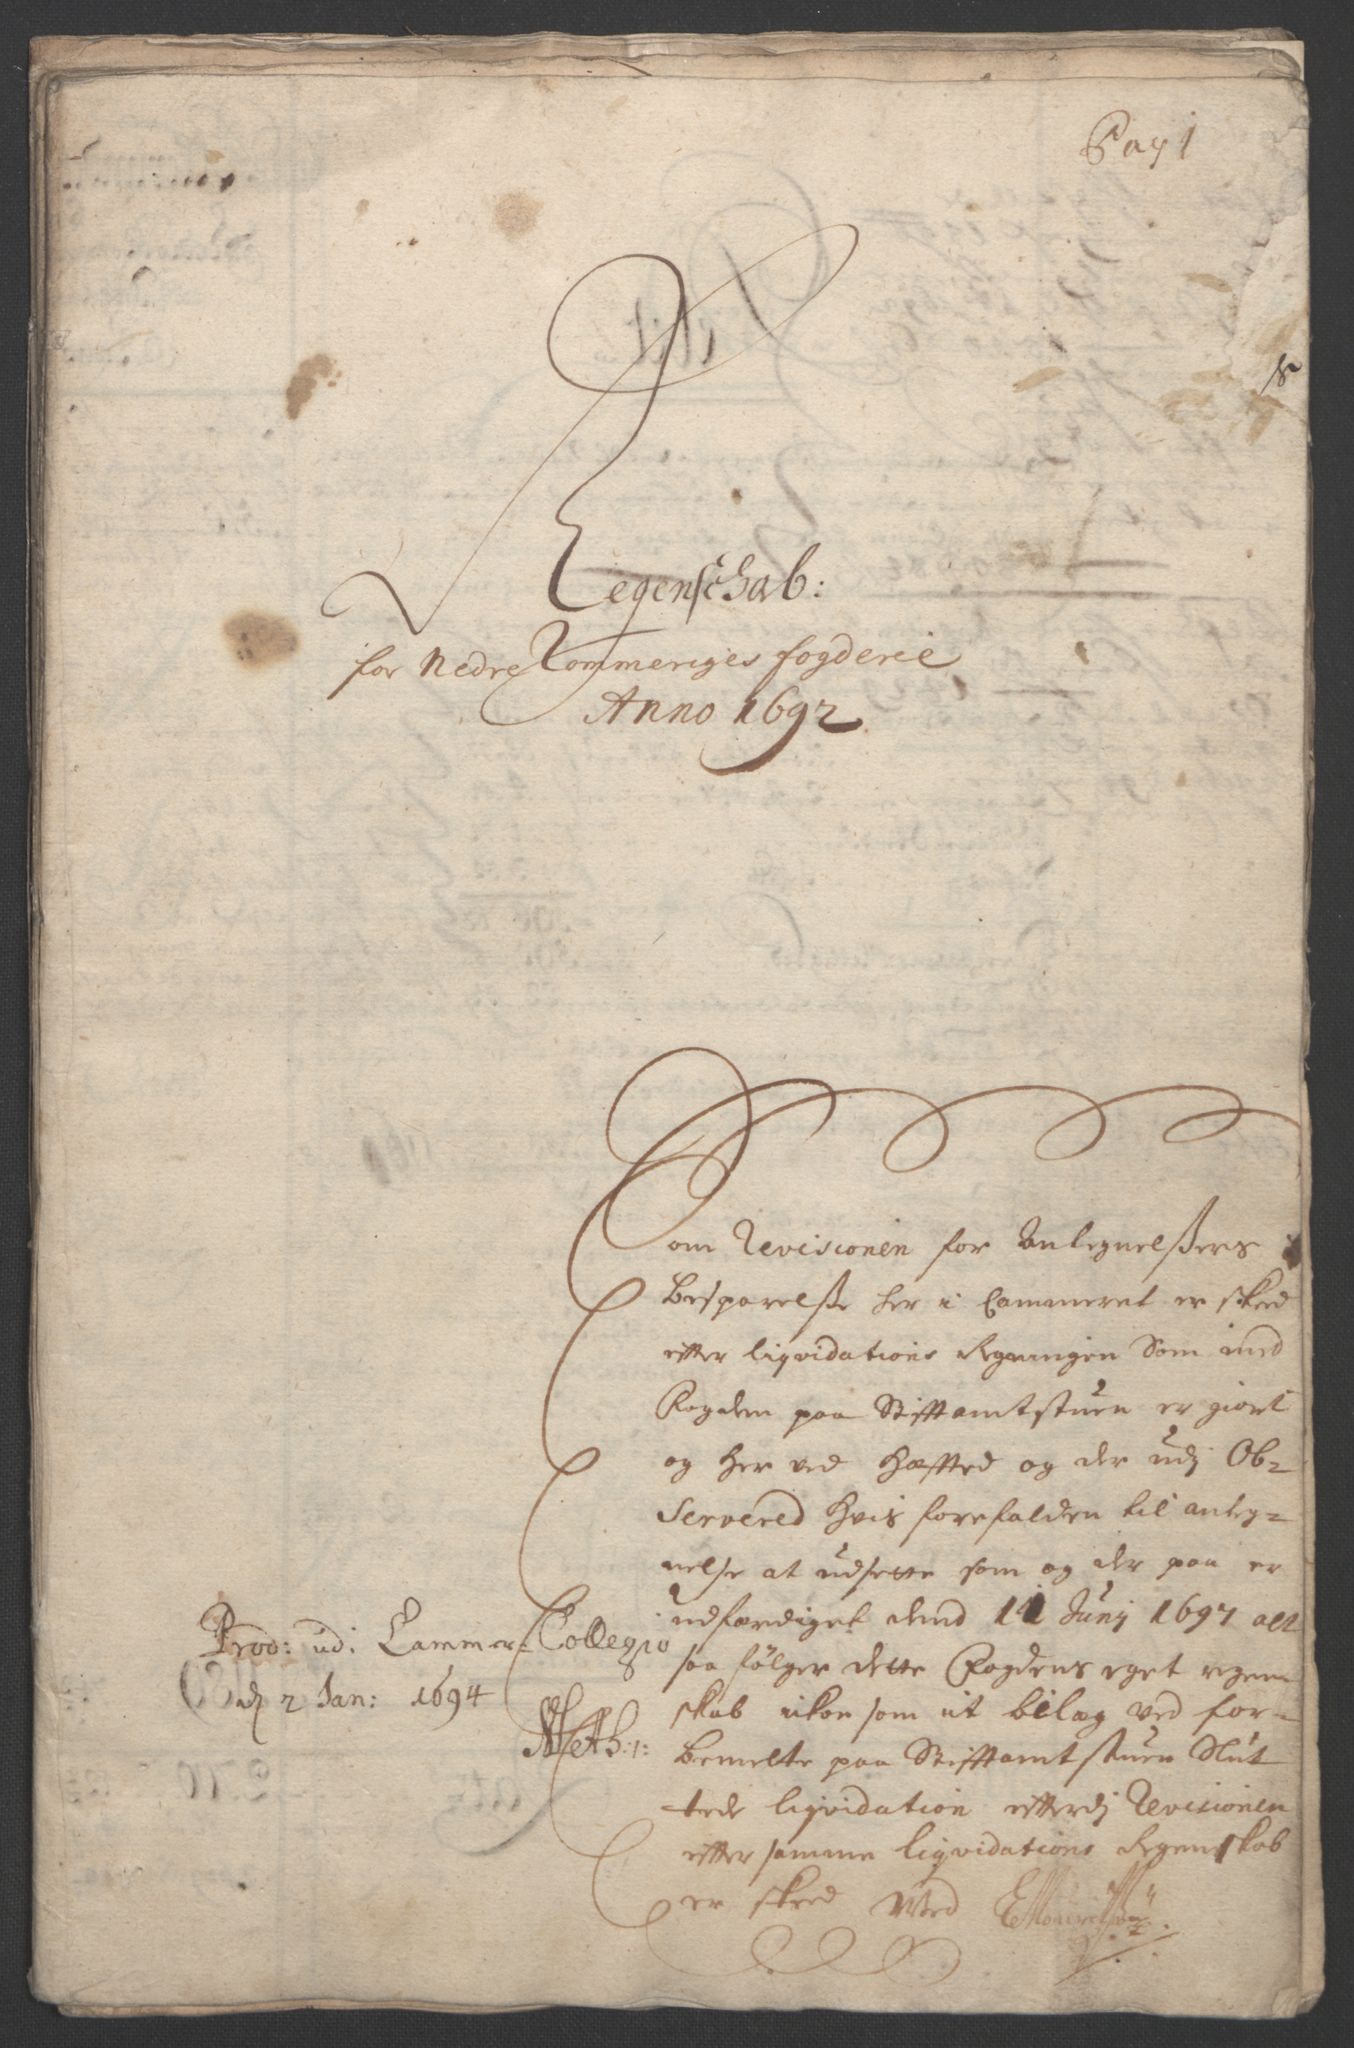 Pag 1
Regenschab:
for Nedre Rommeriges fogderie
Anno 1692
Som Revisionen for Antegnelßers
Besparelße her i Cammeret er skeed
efter liqvidations Regningen Som med
Fogden paa Stifftamtstuen er giort
og her ved hæffted og der udj Ob-
Servered hvis forefalden til anteg-
nelse at udsette som og der paa er
udfærdiget dend 11 Junij 1697 alt
saa følger dette Fogdens eget regen-
skab ikon som it bilag ved for-
bemelte paa Stifftamtstuen Slut-
tede liqvidation efterdj Revisionen
efter samme liqvidations Regenskab
er skeed Ved
Prod: udi Cammer-Collegio
d 2 Jan: 1694